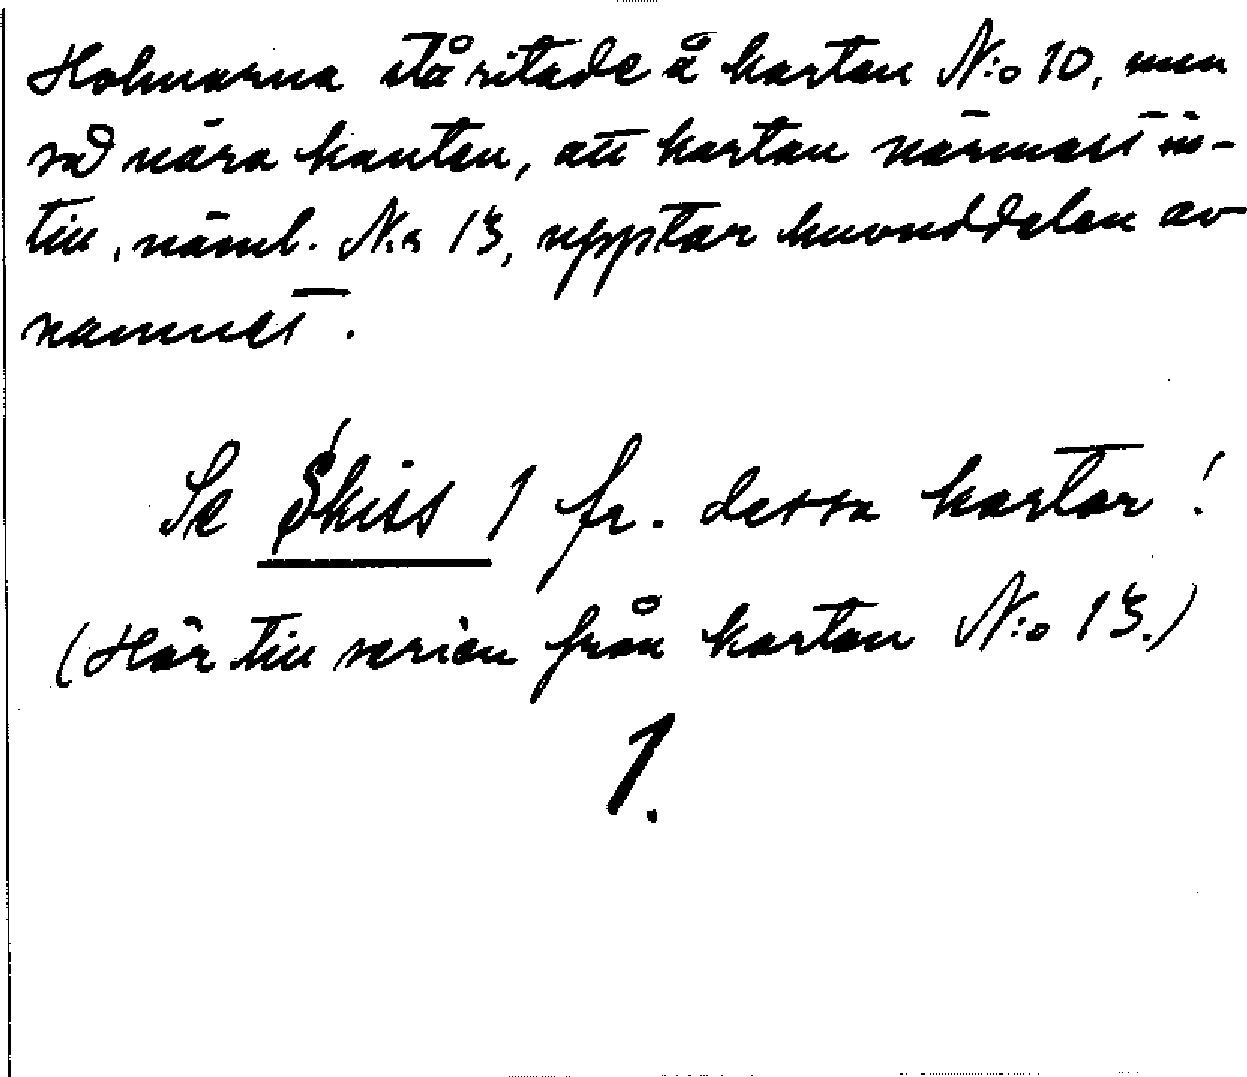 Holmarna stå ritade å kartan N:o 10, men
så nära kanten, att kartan närmast in-
till, näml. N:o 13, upptar huvuddelen av
namnet.
Se Skiss 1 fr. dessa kartor!
(Hör till serien från kartan N:o 13.)
1.